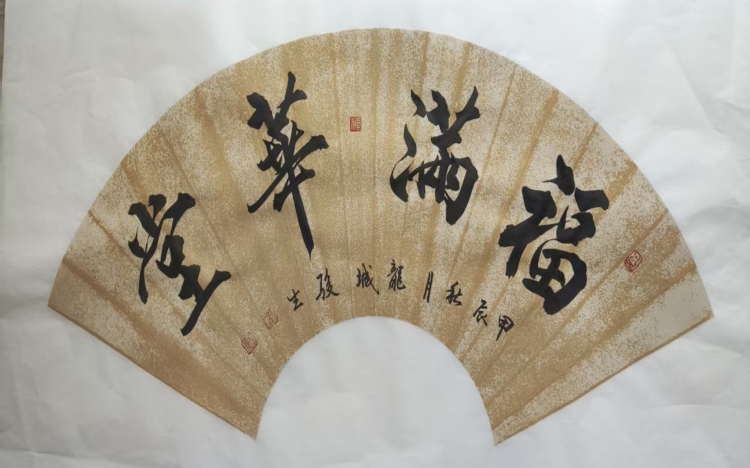 福滿華堂
甲辰秋月龍城駿生